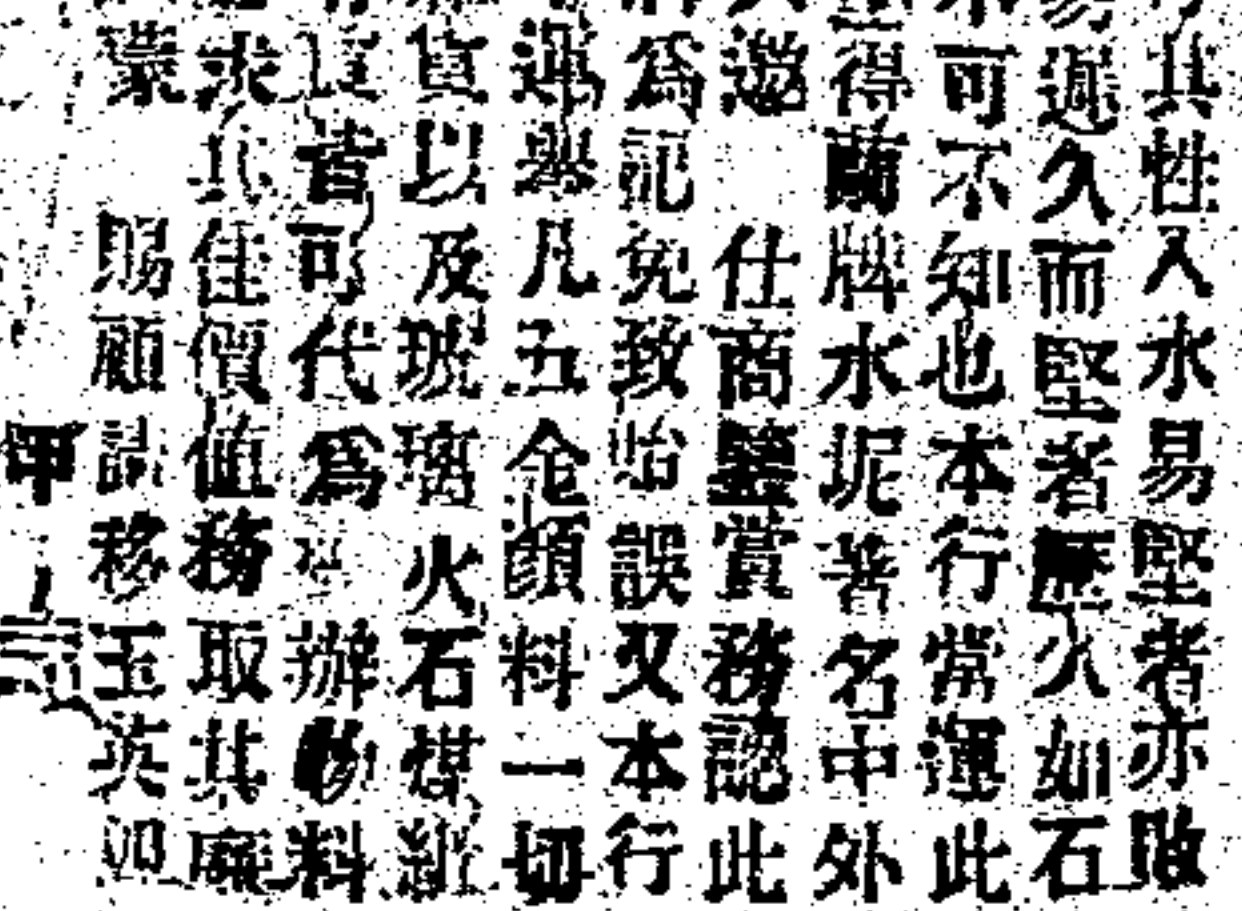 其性入水易堅者亦敗
遲久而堅者歷火如石
可不知也本行常運此
得蘭牌水坭著名中外
邀 仕商鑒賞務認此
為記免致貽誤又本行
運舉凡五金顏料一切
貨以及玻璃火石煤紙
皆可代為辦物料
求其佳價値務取其廉
蒙 賜顧請移玉英